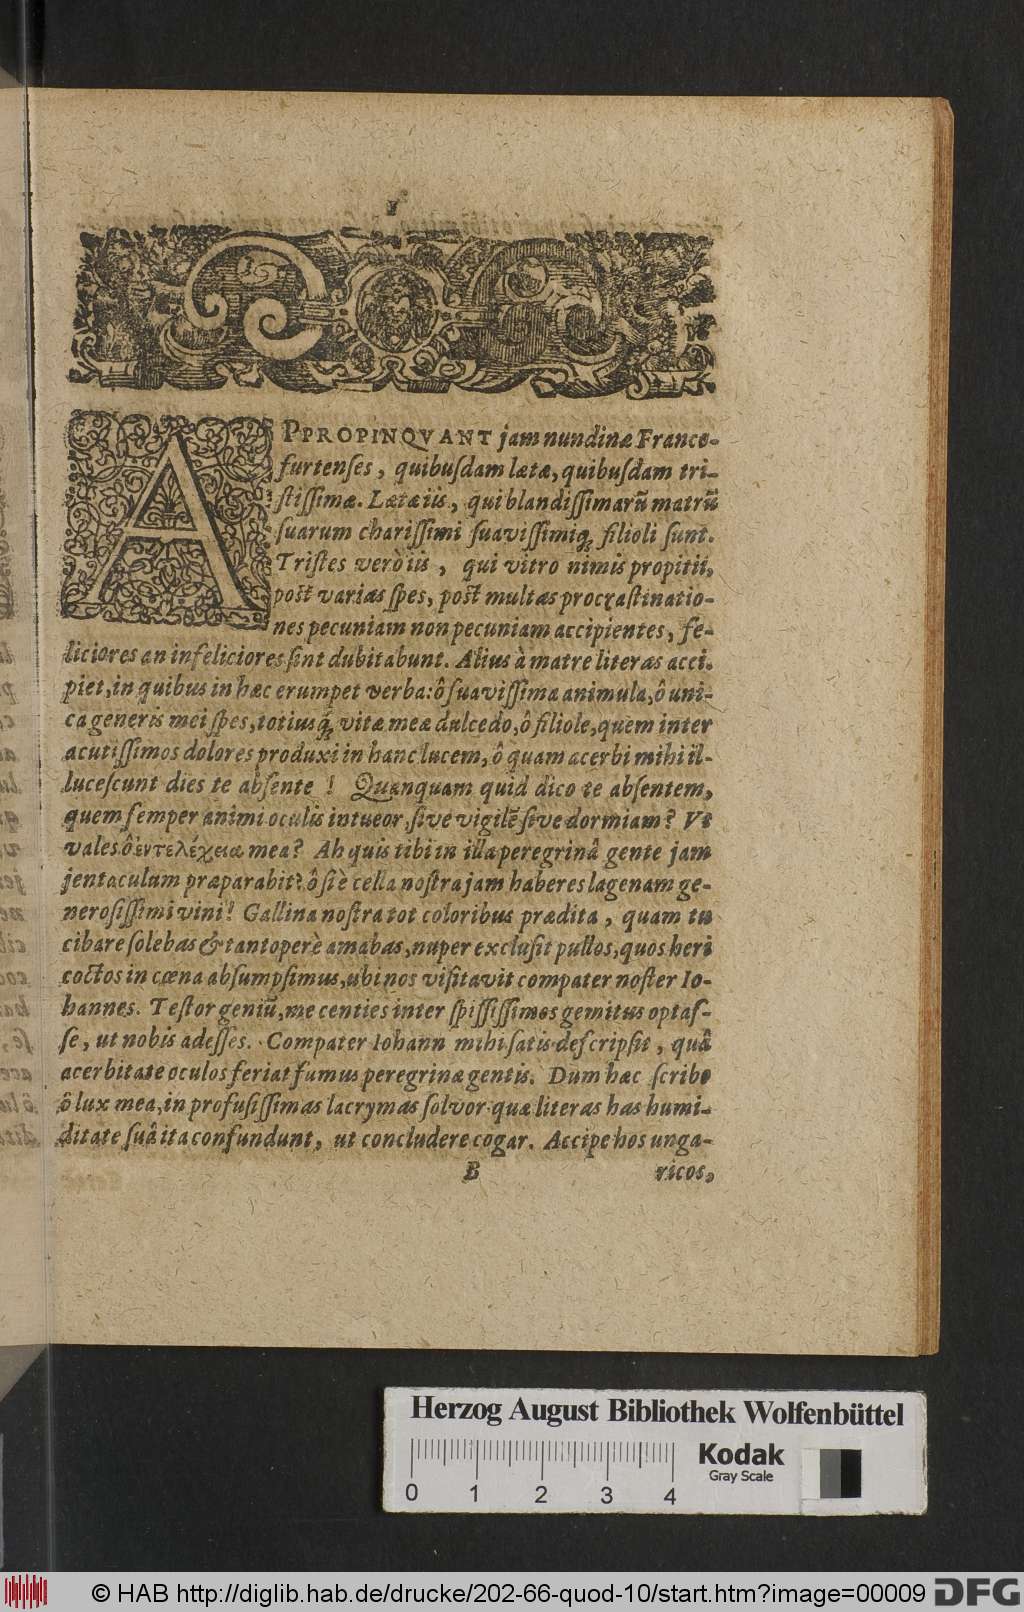 15
APPROPINQVANT jam nundinæ Franco-
furtenſes, quibuſdam lætæ, quibuſdam tri-
ſtiſſimæ. Lætæ iis, qui blandiſſimarũ matrũ
ſuarum chariſſimi ſuaviſſimiq; filioli ſunt.
Triſtes verò iis, qui vitro nimis propitii,
poſt varias ſpes, poſt multas procraſtinatio-
nes pecuniam non pecuniam accipientes, fe-
liciores an infeliciores ſint dubitabunt. Alius à matre literas acci-
piet, in quibus in hæc erumpet verba: ô ſuaviſſima animula, ô uni-
ca generis mei ſpes, totiusq; vitæ meæ dulcedo, ô filiole, quem inter
acutiſſimos dolores produxi in hanc lucem, ô quam acerbi mihi il-
luceſcunt dies te abſente ! Quanquam quid dico te abſentem,
quem ſemper animi oculis intueor, ſive vigilẽ ſive dormiam? Vt
vales ô ἐντελέχεια mea? Ah quis tibi in illa peregrinâ gente jam
jentaculum præparabit? ô ſi è cella noſtra jam haberes lagenam ge-
neroſiſſimi vini! Gallina noſtra tot coloribus prædita, quam tu
cibare ſolebas & tantoperè amabas, nuper excluſit pullos, quos heri
coctos in cœna abſumpſimus, ubi nos viſitavit compater noſter Io-
hannes. Teſtor geniũ, me centies inter ſpiſſiſſimos gemitus optaſ-
ſe, ut nobis adeſſes. Compater Iohann mihi ſatis deſcripſit, quâ
acerbitate oculos feriat fumus peregrinæ gentis. Dum hæc ſcribo
ô lux mea, in profuſiſſimas lacrymas ſolvor quæ literas has humi-
ditate ſuâ ita confundunt, ut concludere cogar. Accipe hos unga-
B ricos,
Herzog August Bibliothek Wolfenbüttel
Kodak
Gray Scale
0 1 2 3 4
© HAB http://diglib.hab.de/drucke/202-66-quod-10/start.htm?image=00009
DFG